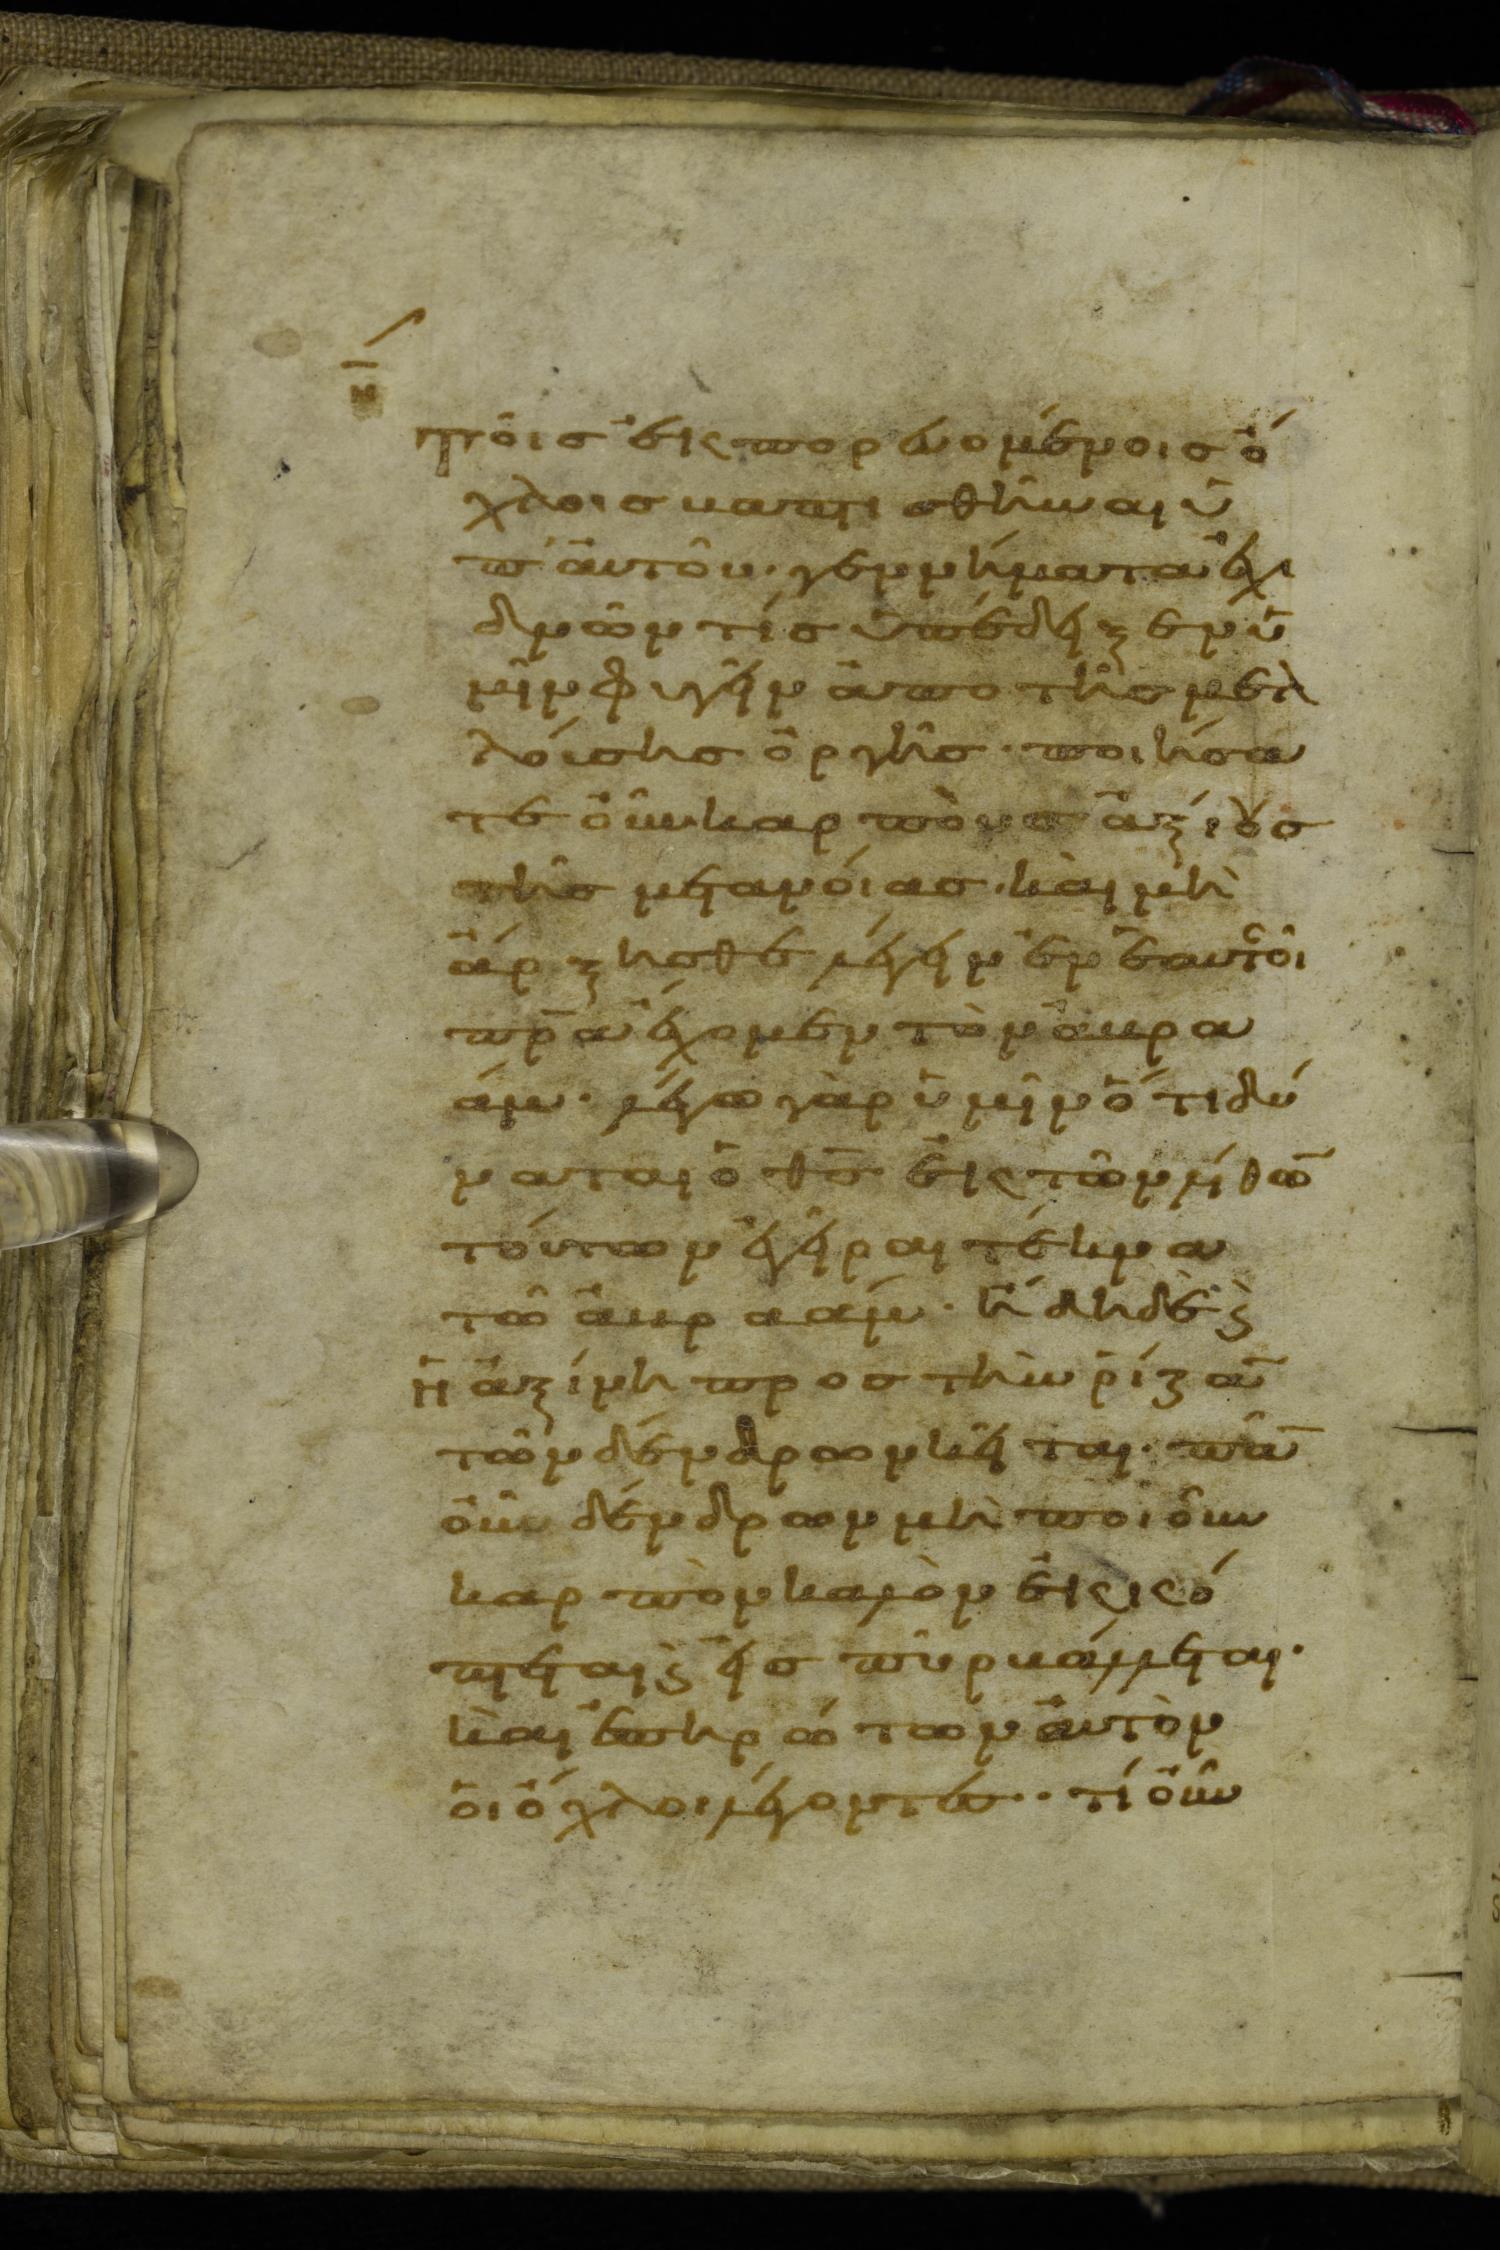 η
τοῖς εἰσπορευομένοις ὄ
χλοις βαπτισθῆναι ὑ
π' αὐτοῦ· γεννήματα ἐχι
δνῶν τίς ὑπέδειξεν ὑ
μῖν φυγεῖν ἀπο τῆς μελ
λούσης ὀργῆς· ποιήσα
τε οὖν καρποὺς ἀξίους
τῆς μετανοίας· καὶ μὴ
ἄρξησθε λέγειν ἐν ἑαυτοῖ
πρ̅α ἔχομεν τὸν ἀβρα
άμ· λέγω γὰρ ὑμῖν ὅτι δύ
ναται ὁ θς̅ ἐκ τῶν λίθω̅
τούτων ἐγεῖραι τέκνα
τῶ ἀβρααμ· ἤδη δὲ ϗ
ἡ ἀξίνη προς τὴν ῥίζα̅
τῶν δένδρων κεῖται· πᾶ̅
οὖν δένδρων μὴ ποιοῦν
καρπὸν καλὸν ἐκκό
πτεται ϗ εἰς πῦρ βάλλεται·
καὶ ἐπηρώτων αὐτὸν
οἱ ὄχλοι λέγοντες·· τί οὖν